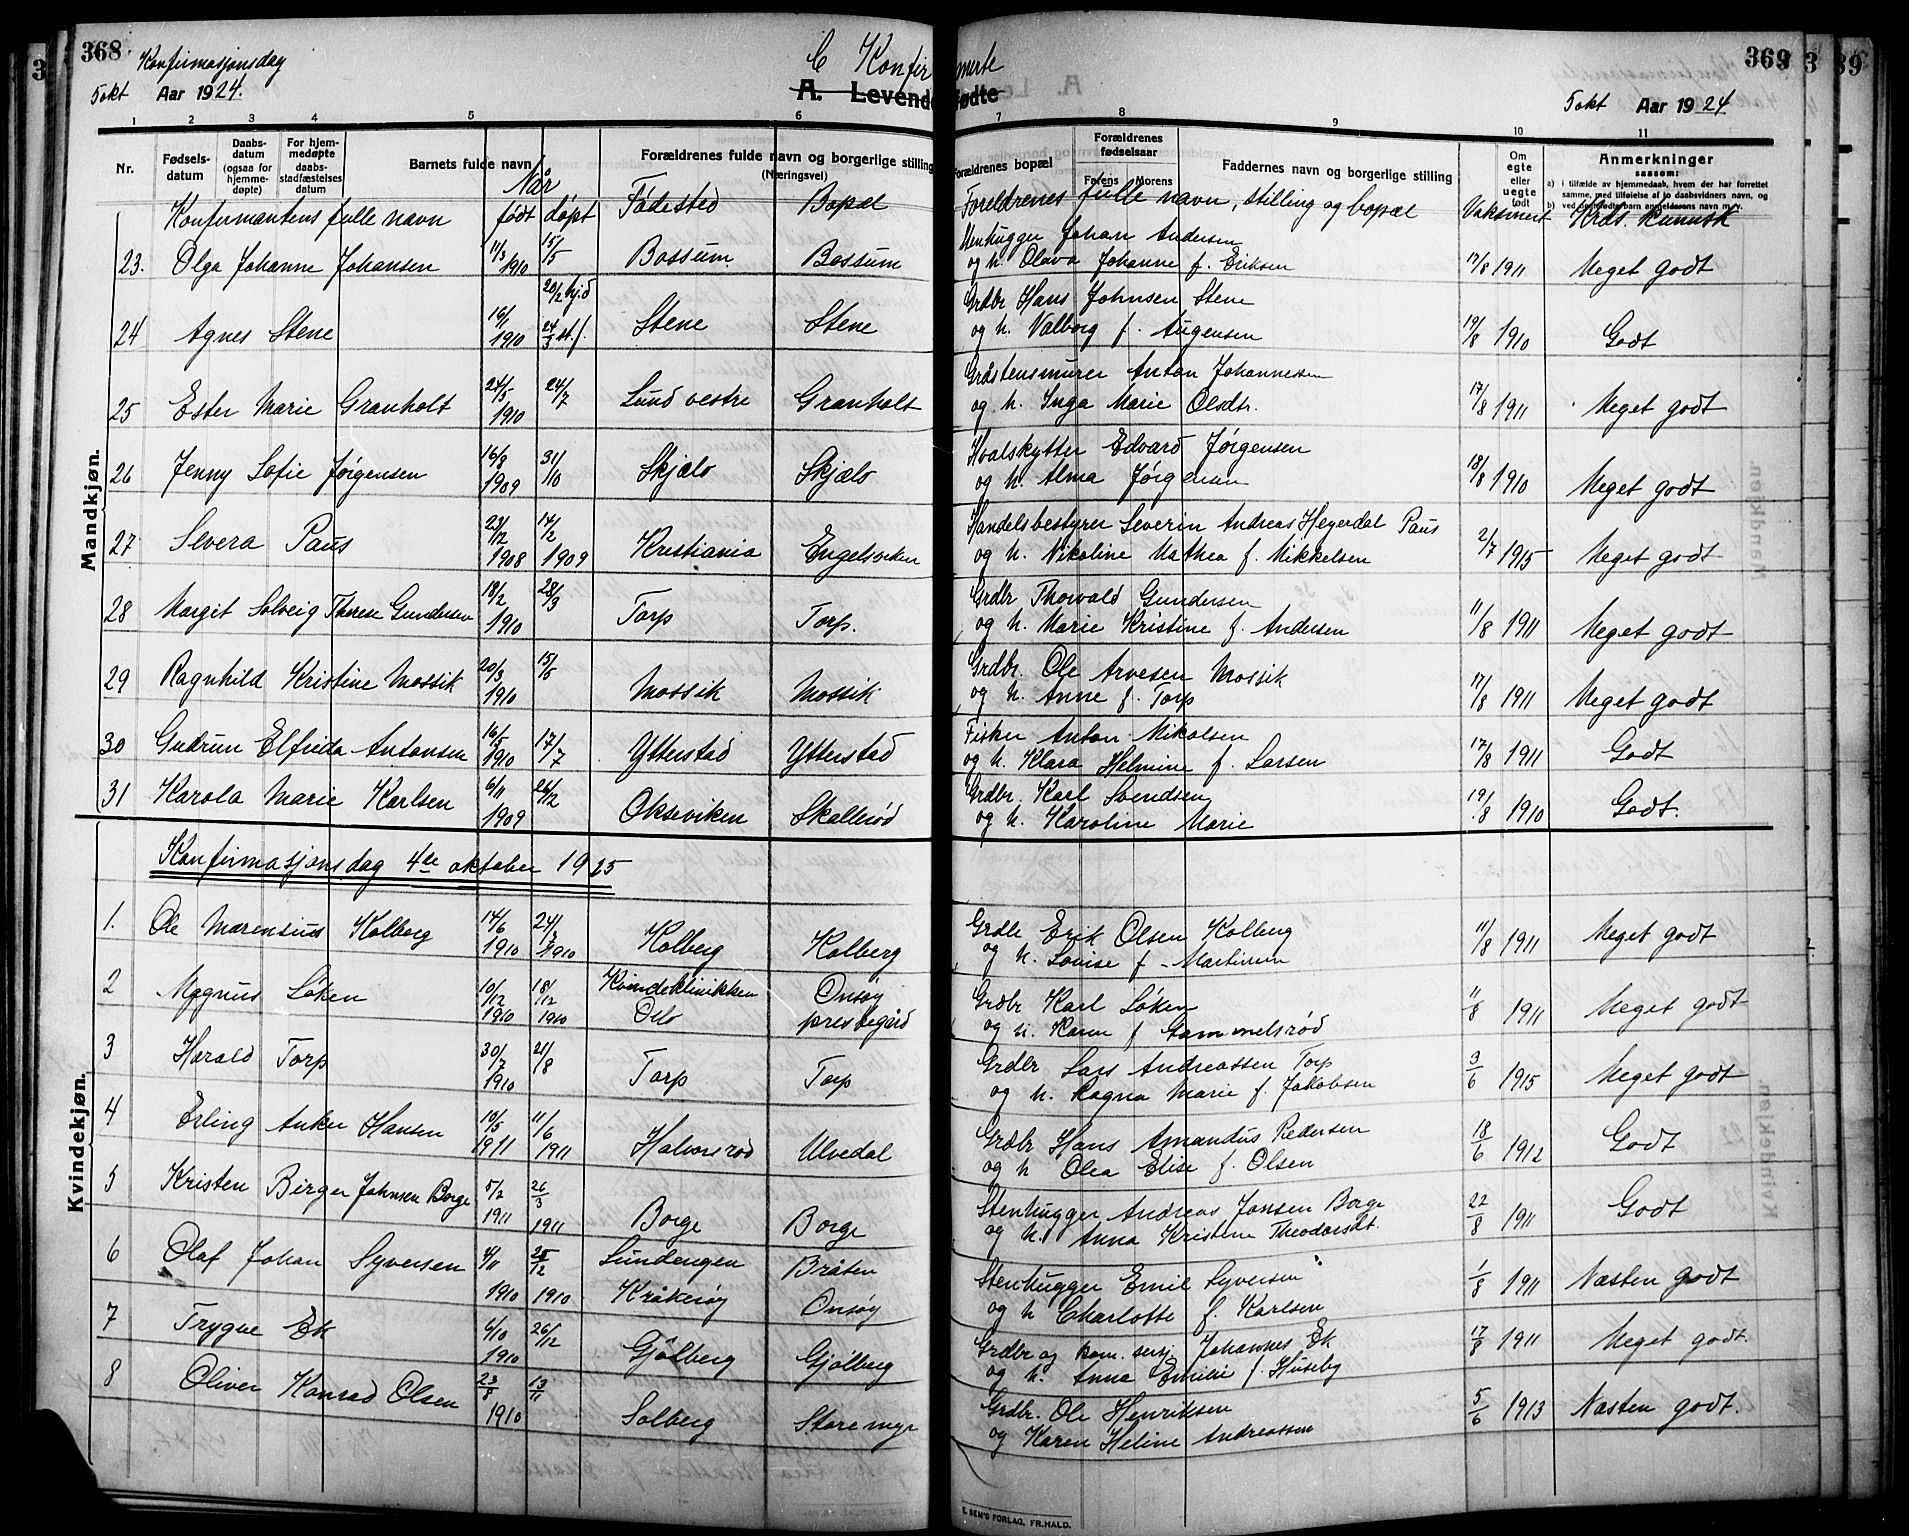 368
Konfirmasjonsdag
5 okt Aar 1924.
C Konfirmerte
A. Levendefødte
369
5 okt Aar 1924
1 2 3 4 5 6 7 8 9 10 11
Nr.
Fødselsdatum
Daabsdatum (ogsaa for hjemmedøpte)
For hjemmedøpte daabsstadfæstelses datum
Barnets fulde navn
Forældrenes fulde navn og borgerlige stilling
(Næringsvei)
Forældrenes bopæl
Forældrenes fødselsaar
Farens Morens
Faddernes navn og borgerlige stilling
Om egte eller uegte født
Anmerkninger
saasom:
a) i tilfælde av hjemmedaab, hvem der har forrettet samme, med tilføielse af to daabsvidners navn, og
b) ved dødfødte barn anmelderens navn m. v.
Konfirmantens fulle navn Når født døpt Fødested Bopæl Foreldrenes fulle navn, stilling og bopæl Vaksinert Krds. kunnsk
Mandkjøn.
23. Olga Johanne Johansen 11/3 1910 15/5 Bossum Bossum Stenhugger Johan Andersen
og h. Olava Johanne f. Eriksen 17/8 1911 Meget godt
24 Agnes Stene 16/1 1910 20/2 hjd 24/3 st.f. Stene Stene Grdbr Hans Johnsen Stene
og h. Valborg f. Augensen 19/8 1910 Godt
25 Ester Marie Granholt 24/5 1910 24/7 Lund vestre Granholt Gråstensmurer Anton Johannessen
og h. Inga Marie Olsdtr. 17/8 1911 Meget godt
26 Jenny Sofie Jørgensen 16/8 1909 31/10 Skjælo Skjælo Hvalskytter Edvard Jørgensen
og h. Alma Jørgensen 18/8 1910 Meget godt
27 Severa Paus 23/12 1908 14/2 1909 Kristiania Engelsviken Handelsbestyrer Severin Andreas Heyerdal Paus
og h. Nikoline Mathea f. Mikkelsen 2/7 1915 Meget godt
28 Margit Solveig Therese Gundersen 18/2 1910 28/3 Torp Torp. Grdbr Thorvald Gundersen
og h. Marie Kristine f. Andersen 11/8 1911 Meget godt
29 Ragnhild Kristine Mossik 20/3 1910 15/5 Mossik Mossik Grdbr. Ole Arvesen Mossik
og h. Anne f. Torp 17/8 1911 Meget godt
30 Gudrun Elfrida Antonsen 16/5 1910 17/7 Ytterstad Ytterstad Fisker Anton Nikolsen
og h. Klara Helmine f. Larsen 17/8 1911 Godt
31 Karola Marie Karlsen 6/11 1909 26/12 Okseviken Skallerød Grdbr. Karl Svendsen
og h. Karoline Marie 19/8 1910 Godt.
Konfirmasjonsdag 4de oktober 1925
Kvindekjøn.
1. Ole Marensius Kolberg 14/6 1910 24/7 1910 Kolberg Kolberg Grdbr Erik Olsen Kolberg
og h. Lovise f. Martinsen 11/8 1911 Meget godt
2 Magnus Løken 10/12 1910 18/12 1910 Kvindeklinikken Oslo Onsøy prestegård Grdbr Karl Løken
og h. Karen f Gammelsrød 11/8 1911 Meget godt
3 Harald Torp 30/7 1910 21/8 Torp Torp Grdbr Lars Andreassen Torp
og h. Ragna Marie f. Jakobsen 3/6 1915 Meget godt
4 Erling Anker Hansen 10/5 1911 11/6 1911 Halvorsrød Ulvedal Grdbr Hans Amandus Pedersen
og h Olea Elise f. Olsen 18/6 1912 Godt
5 Kristen Birger Johnsen Borge 5/2 1911 26/3 1911 Borge Borge Stenhugger Andreas Jansen Borge
og h. Anna Kristine Theodorsdt. 22/8 1911 Godt
6 Olaf Johan Syversen 4/11 1910 25/12 1910 Lundengen Kråkerøy Bråten Onsøy Stenhugger Emil Syversen
og h Charlotte f. Karlsen 1/8 1911 Næsten godt
7 Trygve Ek 4/10 1910 26/12 Gjølberg Gjølberg Grdbr og Johannes Ek
og h. Anna Emilie f. Huseby 17/8 1911 Meget godt.
8 Oliver Konrad Olsen 23/8 1910 13/11 Solberg Storemyr Grdbr. Ole Henriksen
og Karen Heline Andreassen 5/6 1913 Næsten godt.
SEM'S FORLAG, FR.HALD.